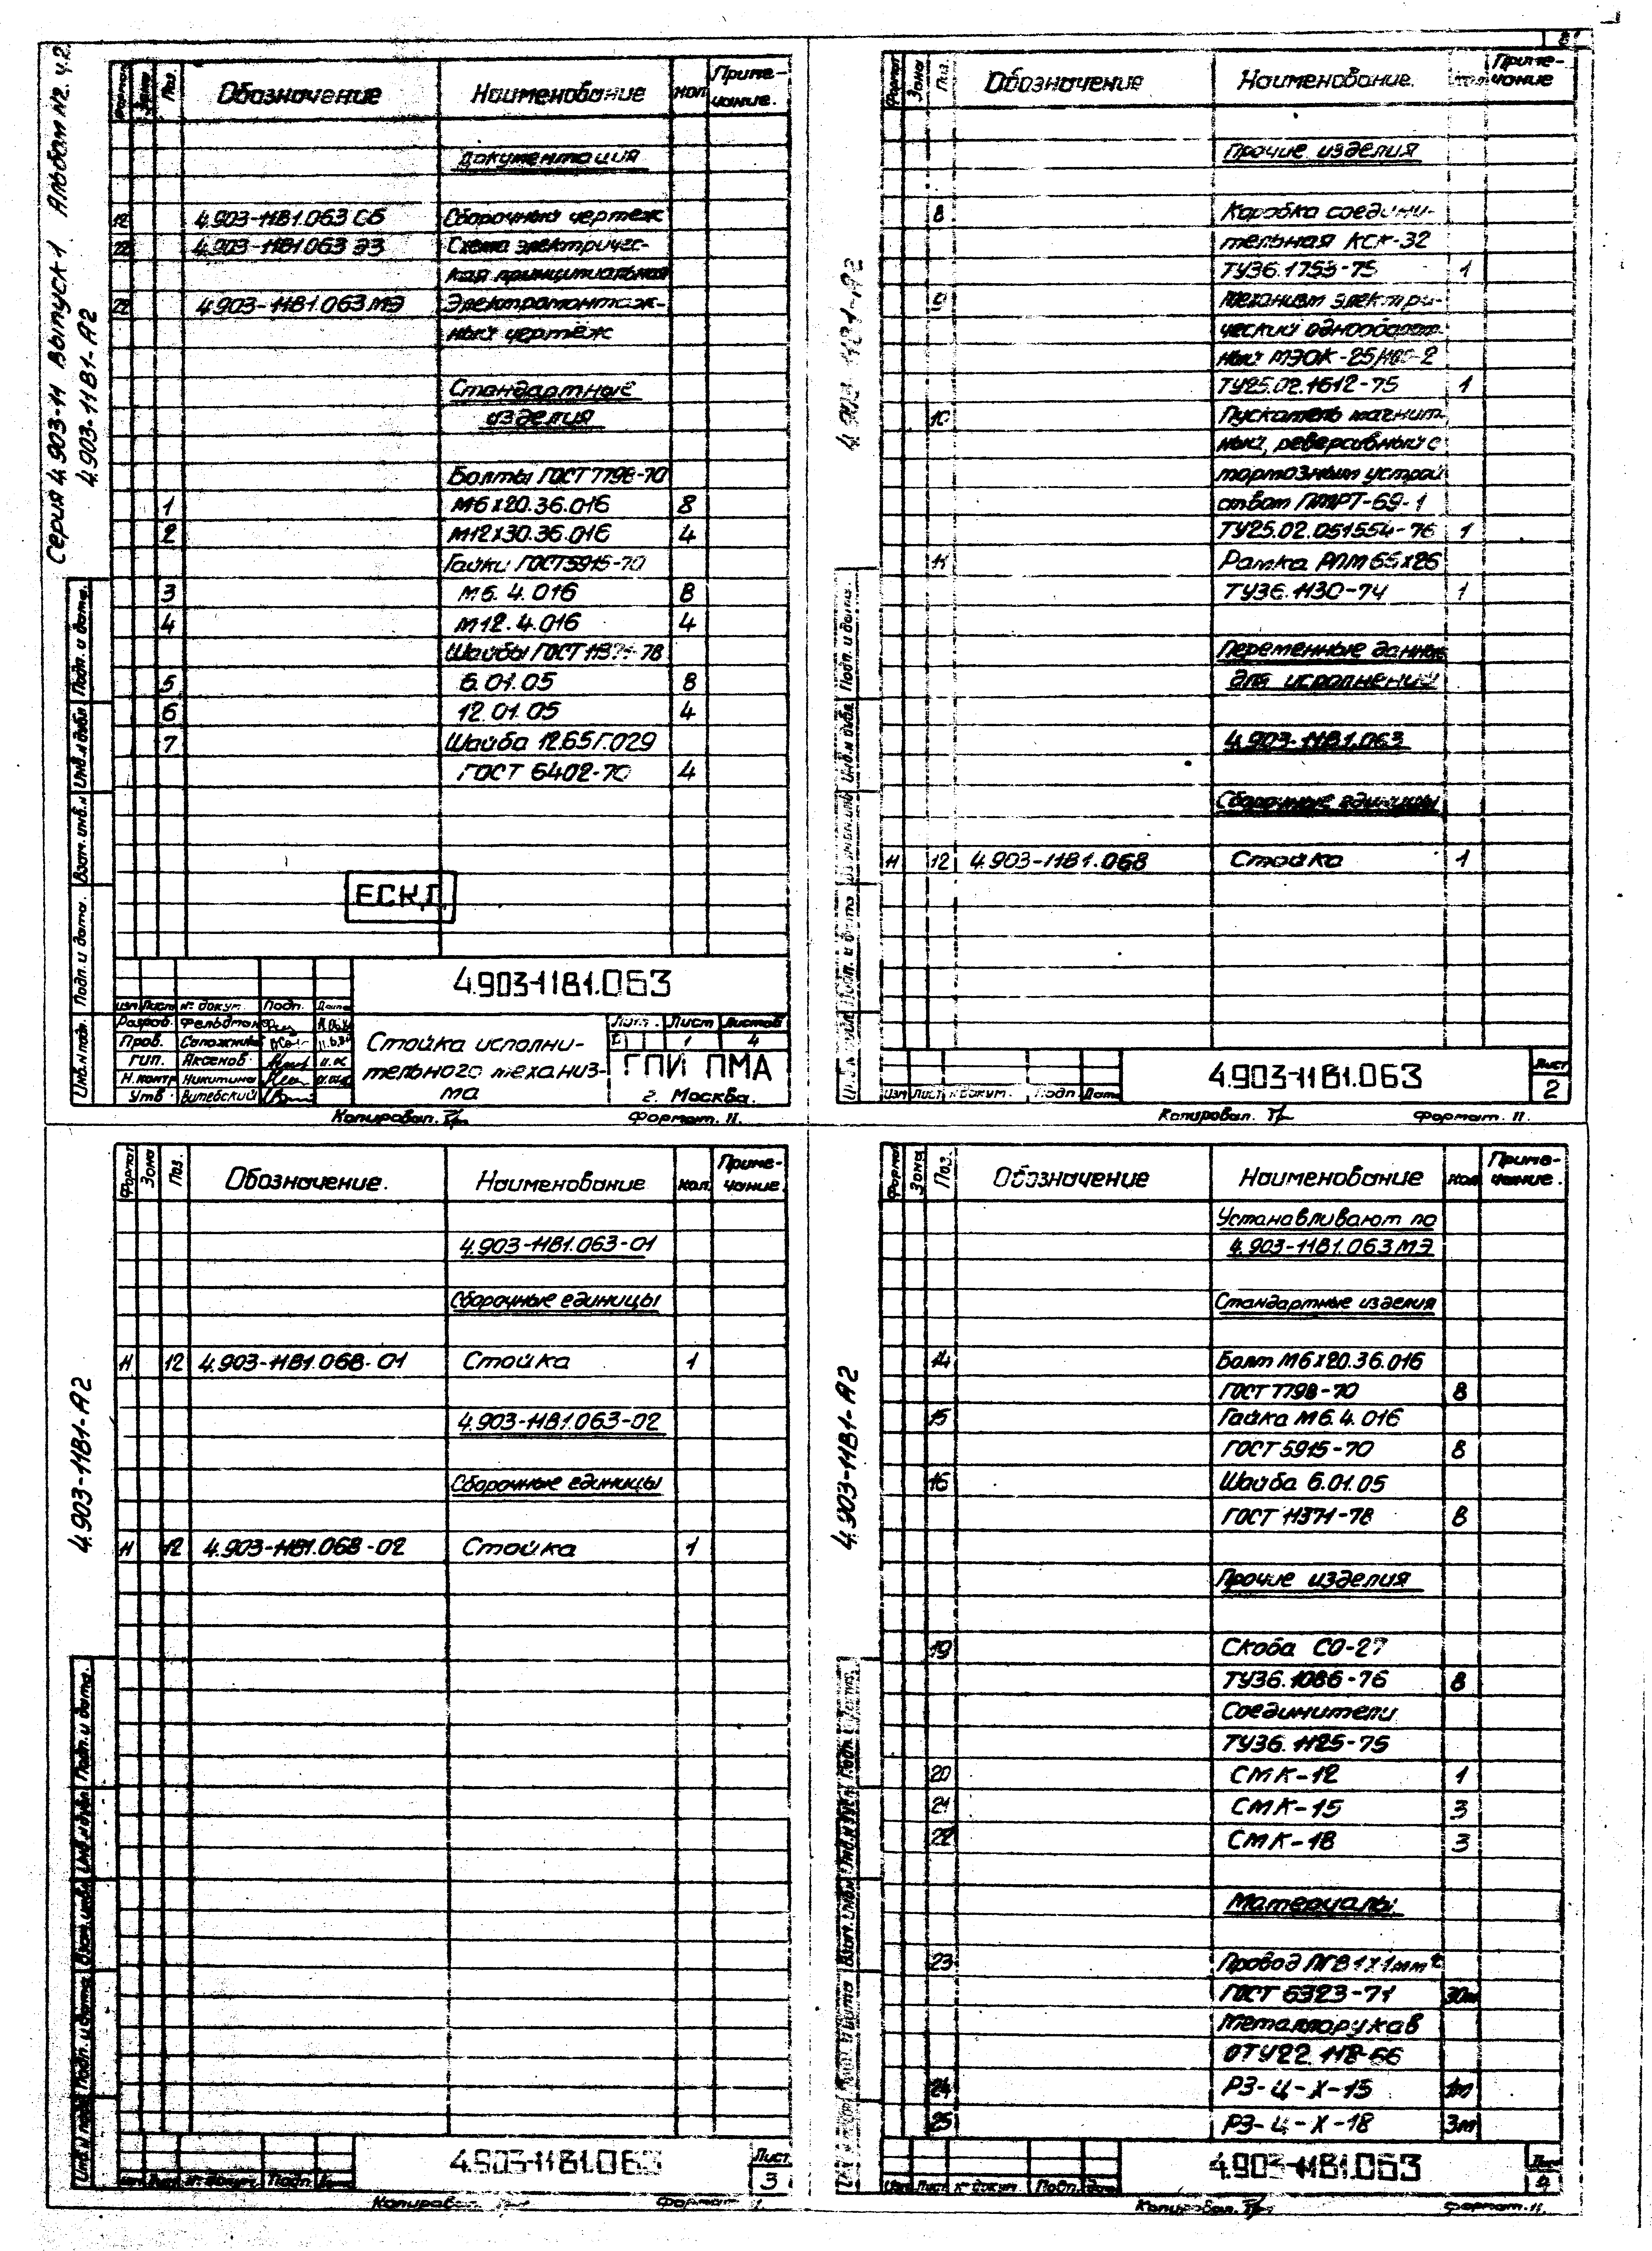 8
Серия 4.903-11 Выпуск 1 Альбом №2. ч.2.
4.903-11В1-А2
Формат Зона Поз. Обозначение Наименование Кол. Примечание.
Документация
12 4.903-11В1.063 СБ Сборочный чертеж
22 4.903-11В1.063 ЭЗ Схема электричес-
кая принципиальная
22 4.903-11В1.063 МЭ Электромонтаж-
ный чертёж
Стандартные
изделия
Болты ГОСТ 7798-70
1 М6х20.36.016 8
2 М12х30.36.016 4
Гайки ГОСТ 5915-70
3 М6.4.016 8
4 М12.4.016 4
Шайбы ГОСТ 11371-78
5 6.01.05 8
6 12.01.05 4
7 Шайба 12.65Г.029
ГОСТ 6402-70 4
ЕСКД
Инв.№ подл. Подп. и дата. Взам. инв.№ Инв.№ дубл Подп. и дата.
4.903-11В1.063
Изм Лист № докум. Подп. Дата
Разраб. Фельдман
Пров. Сапожников
ГИП. Аксенов
Н.контр Никитина
Утв. Витебский
Стойка исполни-
тельного механиз-
ма
Лит. Лист Листов
1 4
ГПИ ПМА
г. Москва.
Копировал. Формат. 11.
4.903-11В1-А2
Формат Зона Поз. Обозначение Наименование. Кол. Примечание
Прочие изделия
8 Коробка соедини-
тельная КСК-32
ТУ36.1753-75 1
9 Механизм электри-
ческий однооборот-
ный МЭОК-25/100-2
ТУ25.02.1612-75 1
10 Пускатель магнит-
ный, реверсивный с
тормозным устрой
ством ПМРТ-69-1
ТУ25.02.051554-76 1
11 Рамка РПМ 65х26
ТУ36.1130-74 1
Переменные данные
для исполнений
4.903-11В1.063
Сборочные единицы
11 12 4.903-11В1.068 Стойка 1
4.903-11В1.063
Изм Лист № докум. Подп Дата
Лист
2
Копировал. Формат. 11.
4.903-11В1-А2
Формат Зона Поз. Обозначение. Наименование Кол. Примечание.
4.903-11В1.063-01
Сборочные единицы
11 12 4.903-11В1.068-01 Стойка 1
4.903-11В1.063-02
Сборочные единицы
11 12 4.903-11В1.068-02 Стойка 1
4.903-11В1.063
Изм Лист № докум. Подп. Дата
Лист
3
Копировал. Формат
4.903-11В1-А2
Формат Зона Поз. Обозначение Наименование Кол. Примечание.
Устанавливают по
4.903-11В1.063 МЭ
Стандартные изделия
14 Болт М6х20.36.016
ГОСТ 7798-70 8
15 Гайка М6.4.016
ГОСТ 5915-70 8
16 Шайба 6.01.05
ГОСТ 11371-78 8
Прочие изделия
19 Скоба СО-27
ТУ36.1086-76 8
Соединители
ТУ36.1125-75
20 СМК-12 1
21 СМК-15 3
22 СМК-18 3
Материалы.
23 Провод ПГВ 1х1мм²
ГОСТ 6323-71 30м
Металлорукав
ОТУ22 118-66
24 РЗ-Ц-Х-15 1м
25 РЗ-Ц-Х-18 3м
4.903-11В1.063
Изм Лист № докум Подп. Дата
Лист
4
Копировал. Формат. 11.